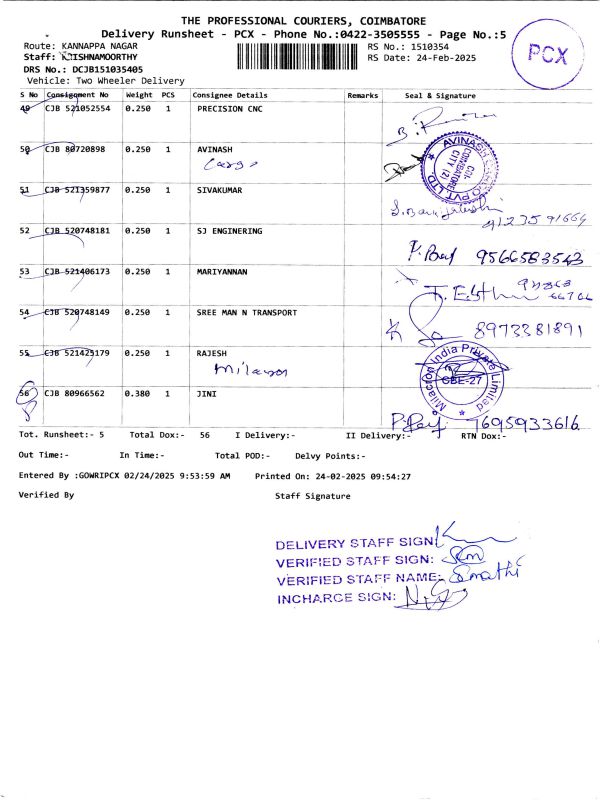 THE PROFESSIONAL COURIERS, COIMBATORE
Delivery Runsheet - PCX - Phone No.:0422-3505555 - Page No.:5
Route: KANNAPPA NAGAR
RS No.: 1510354
Staff: KRISHNAMOORTHY
RS Date: 24-Feb-2025
DRS No.: DCJB151035405
Vehicle: Two Wheeler Delivery
PCX
S No Consignment No Weight PCS Consignee Details Remarks Seal & Signature
49 CJB 521052554 0.250 1 PRECISION CNC
50 CJB 80720898 0.250 1 AVINASH
Cargo
AVINASH CARGO PVT. LTD.
COIMBATORE
CITY (2)
51 CJB 521359877 0.250 1 SIVAKUMAR
9123591664
52 CJB 520748181 0.250 1 SJ ENGINERING
9566583543
53 CJB 521406173 0.250 1 MARIYANNAN
54 CJB 520748149 0.250 1 SREE MAN N TRANSPORT
8973381891
55 CJB 521425179 0.250 1 RAJESH
Milacron
Milacron India Private Limited
CBE-27
56 CJB 80966562 0.380 1 JINI
7695933616
Tot. Runsheet:- 5 Total Dox:- 56 I Delivery:- II Delivery:- RTN Dox:-
Out Time:- In Time:- Total POD:- Delvy Points:-
Entered By :GOWRIPCX 02/24/2025 9:53:59 AM Printed On: 24-02-2025 09:54:27
Verified By Staff Signature
DELIVERY STAFF SIGN:
VERIFIED STAFF SIGN:
VERIFIED STAFF NAME:
INCHARGE SIGN: